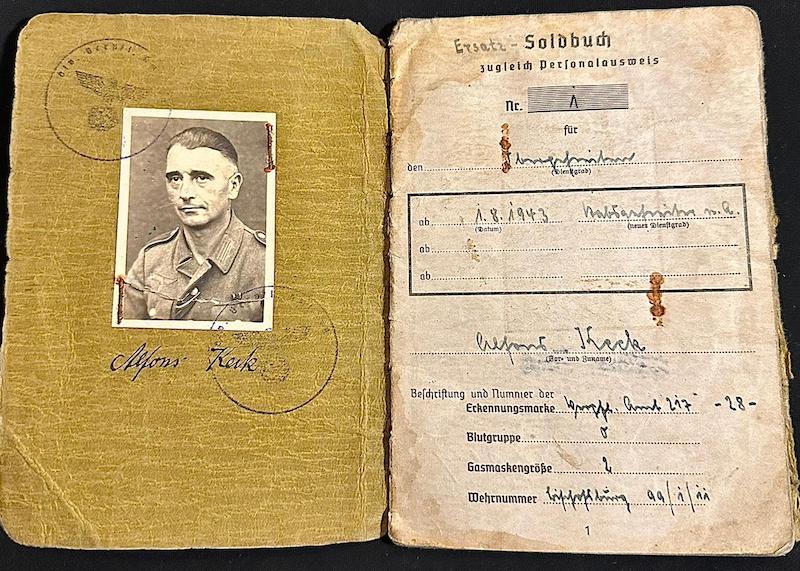 Alfons Keck
Ersatz - Soldbuch
zugleich Personalausweis
Nr. 1
für
den
(Dienstgrad)
ab 1.8.1943 Stabsgefreiter
(Datum) (neuer Dienstgrad)
ab
ab
Alfons Keck
(Vor- und Zuname)
Beschriftung und Nummer der
Erkennungsmarke Amt 217 - 28 -
Blutgruppe
Gasmaskengröße 2
Wehrnummer